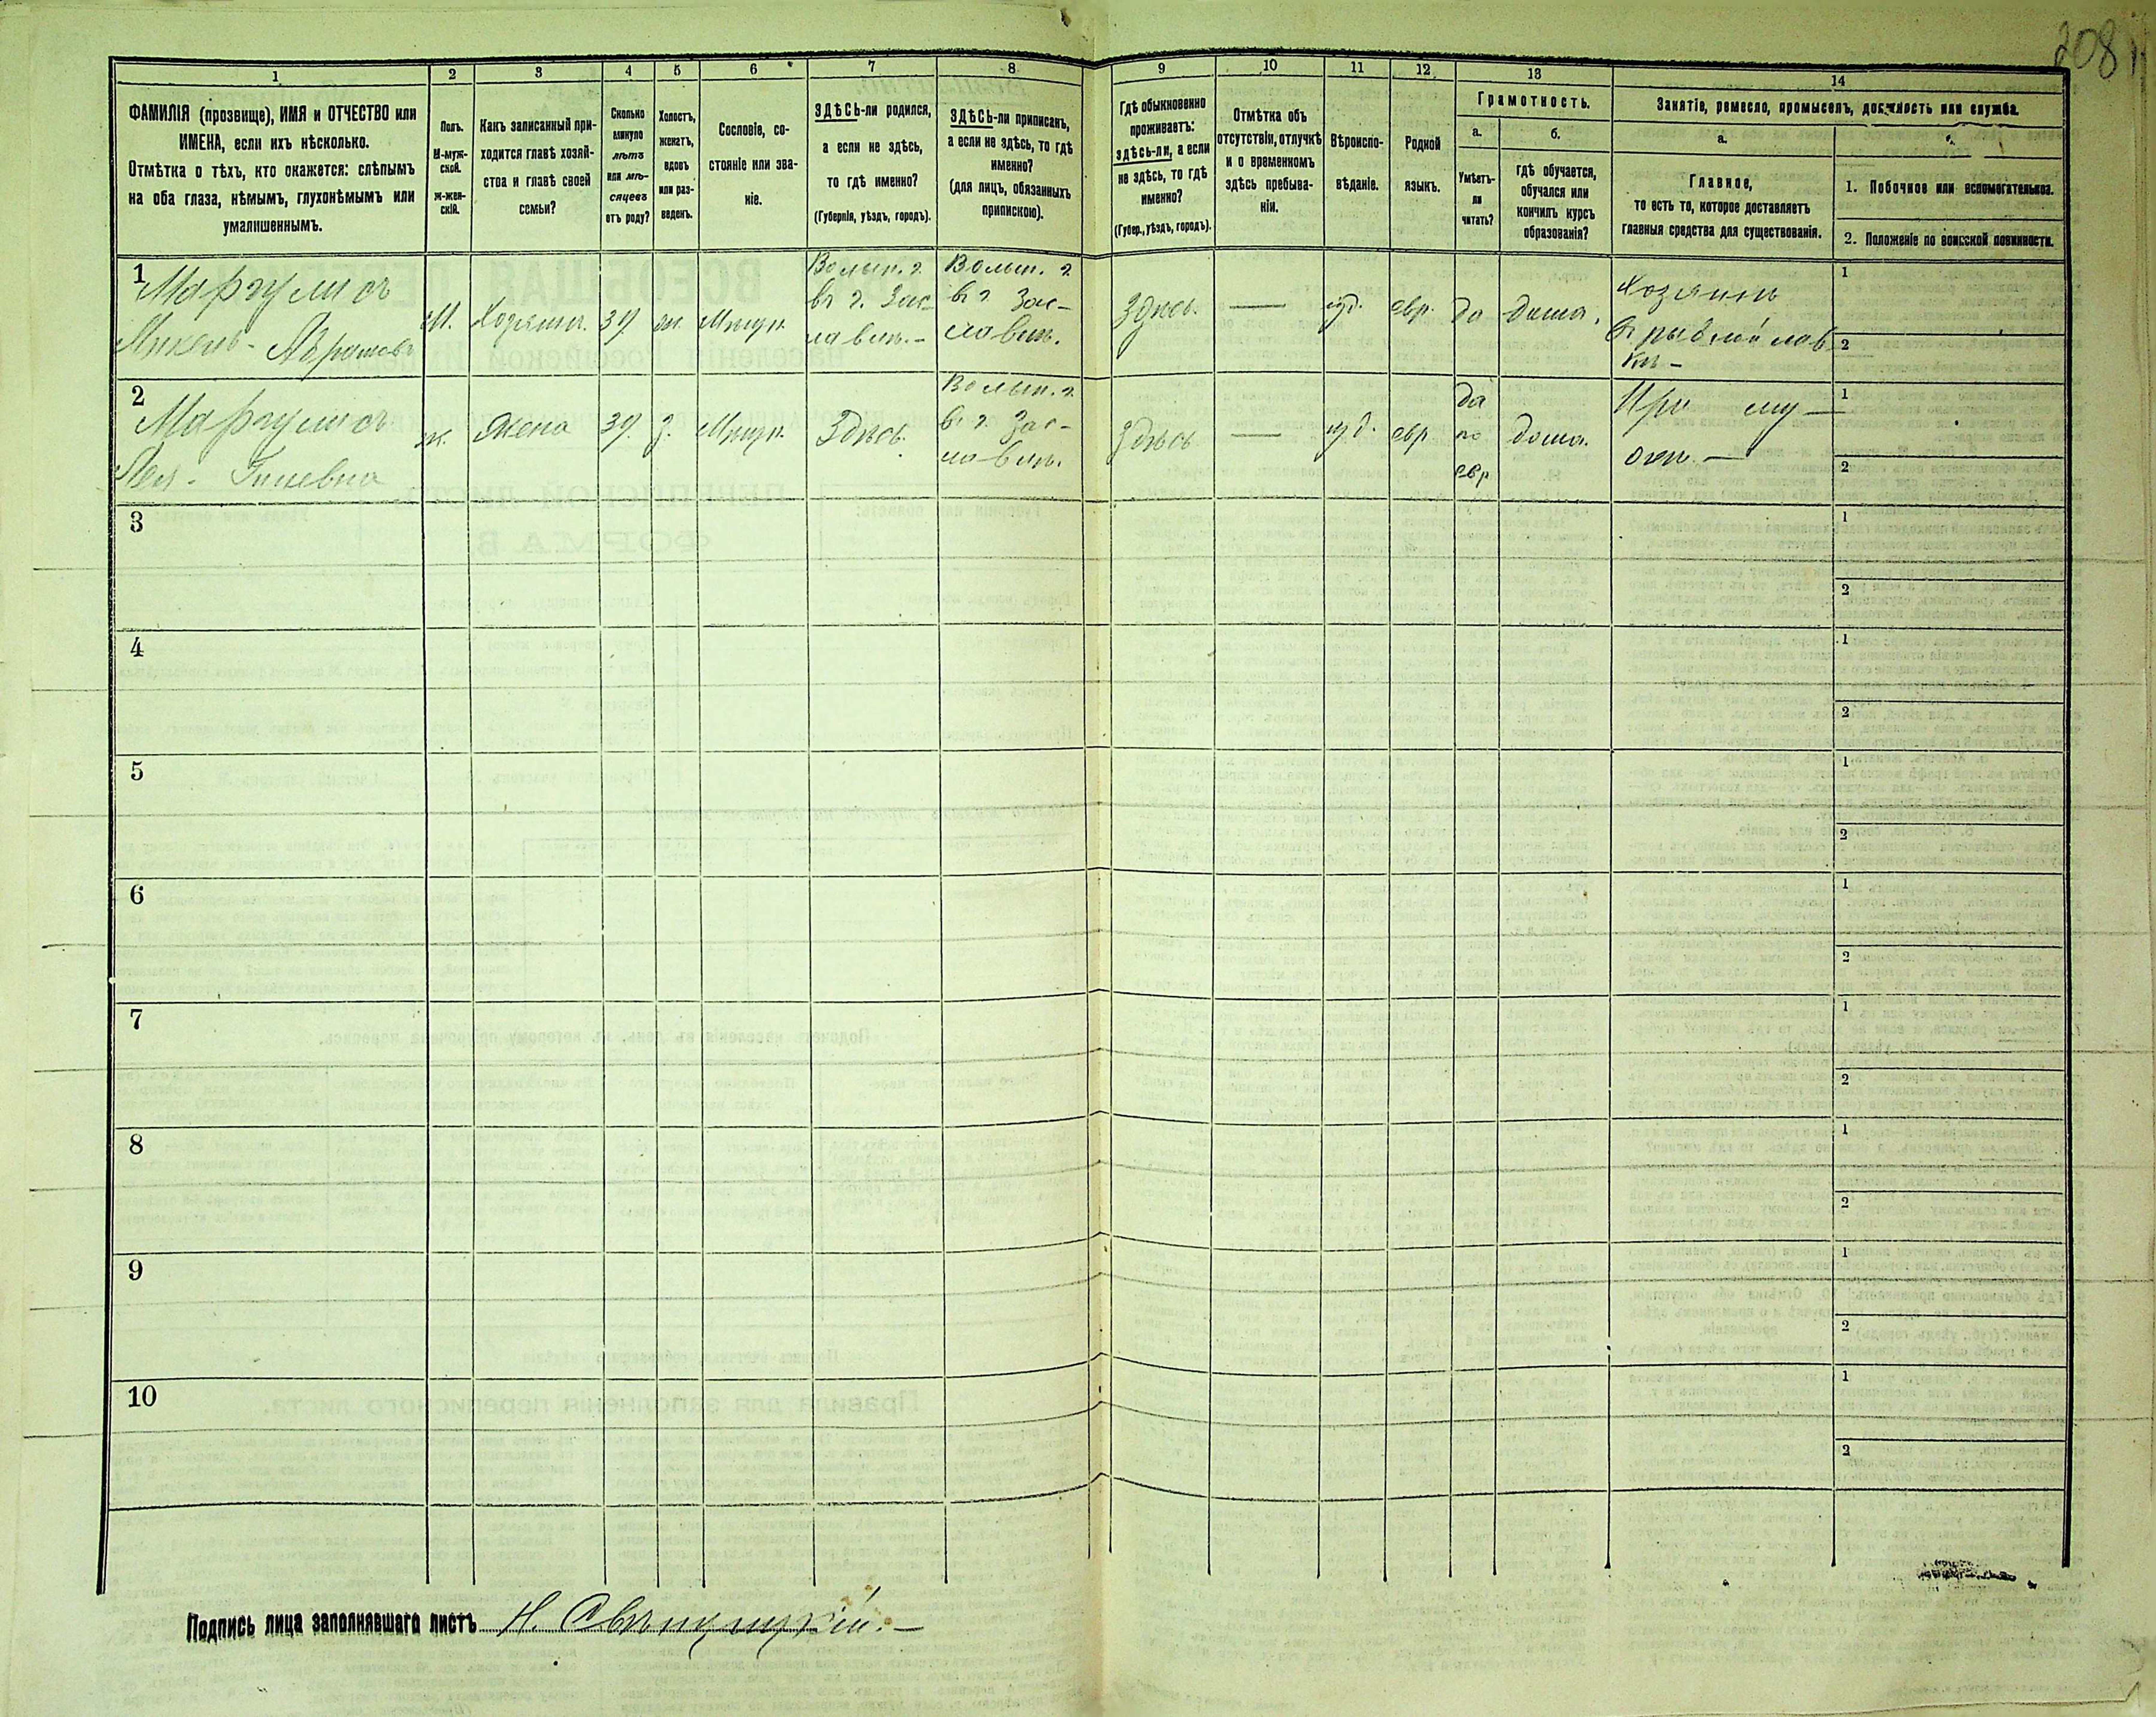 208
1
2
3
4
5
6
7
8
9
10
11
12
13
14
ФАМИЛІЯ (прозвище), ИМЯ и ОТЧЕСТВО или
ИМЕНА, если ихъ нѣсколько.
Отмѣтка о тѣхъ, кто окажется: слѣпымъ
на оба глаза, нѣмымъ, глухонѣмымъ или
умалишеннымъ.
Полъ.
М-муж-
ской.
Ж-жен-
скій.
Какъ записанный при-
ходится главѣ хозяй-
ства и главѣ своей
семьи?
Сколько
минуло
лѣтъ
или мѣ-
сяцевъ
отъ роду?
Холостъ,
женатъ,
вдовъ
или раз-
веденъ.
Сословіе, со-
стояніе или зва-
ніе.
ЗДѢСЬ-ли родился,
а если не здѣсь,
то гдѣ именно?
(Губернія, уѣздъ, городъ).
ЗДѢСЬ-ли приписанъ,
а если не здѣсь, то гдѣ
именно?
(для лицъ, обязанныхъ
припискою).
Гдѣ обыкновенно
проживаетъ:
здѣсь-ли, а если
не здѣсь, то гдѣ
именно?
(Губер., уѣздъ, городъ).
Отмѣтка объ
отсутствіи, отлучкѣ
и о временномъ
здѣсь пребыва-
ніи.
Вѣроиспо-
вѣданіе.
Родной
языкъ.
Грамотность.
а.
Умѣетъ-
ли
читать?
б.
гдѣ обучается,
обучался или
кончилъ курсъ
образованія?
Занятіе, ремесло, промыселъ, должность или служба.
а.
Главное,
то есть то, которое доставляетъ
главныя средства для существованія.
1. Побочное или вспомогательное.
2. Положеніе по воинской повинности.
1
Маргулисъ
М.
39
Волын. г.
въ г. Зас-
лавлъ.
Волын. г.
въ г. Зас-
лавлъ.
Здѣсь.
—
іуд.
евр.
да
дома.
Хозяинъ
1
2
2
Маргулисъ
Лея
ж.
Жена
39.
З.
Здѣсь.
Волын. г.
въ г. Зас-
лавлъ.
Здѣсь
—
іуд.
евр
да
по
евр
дома.
При му-
жѣ. —
1
2
3
1
2
4
1
2
5
1
2
6
1
2
7
1
2
8
1
2
9
1
2
10
1
2
Подпись лица заполнявшаго листъ Н.